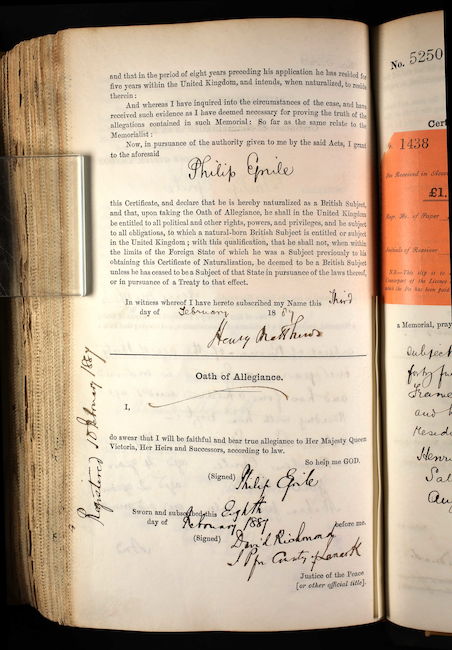 and that in the period of eight years preceding his application he has resided for
five years within the United Kingdom, and intends, when naturalized, to reside
therein:
And whereas I have inquired into the circumstances of the case, and have
received such evidence as I have deemed necessary for proving the truth of the
allegations contained in such Memorial: So far as the same relate to the
Memorialist:
Now, in pursuance of the authority given to me by the said Acts, I grant
to the aforesaid
Philip Eprile
this Certificate, and declare that he is hereby naturalized as a British Subject,
and that, upon taking the Oath of Allegiance, he shall in the United Kingdom
be entitled to all political and other rights, powers, and privileges, and be subject
to all obligations, to which a natural-born British Subject is entitled or subject
in the United Kingdom; with this qualification, that he shall not, when within
the limits of the Foreign State of which he was a Subject previously to his
obtaining this Certificate of Naturalization, be deemed to be a British Subject
unless he has ceased to be a Subject of that State in pursuance of the laws thereof,
or in pursuance of a Treaty to that effect.
In witness whereof I have hereto subscribed my Name this Third
day of February 1887
Henry Matthews
Oath of Allegiance.
I,
do swear that I will be faithful and bear true allegiance to Her Majesty Queen
Victoria, Her Heirs and Successors, according to law.
So help me GOD.
(Signed) Philip Eprile
Sworn and subscribed this Eighth
day of February 1887 before me.
(Signed) David Richmond
J P for County of Lanark
Justice of the Peace
[or other official title].
Registered 10 February 1887
No. 5250
Cert
1438
£1.
Rep. No. of Paper
Initials of Receiver
a Memorial, pray
subject
forty
and
Resid
Henri
Sal
Aug